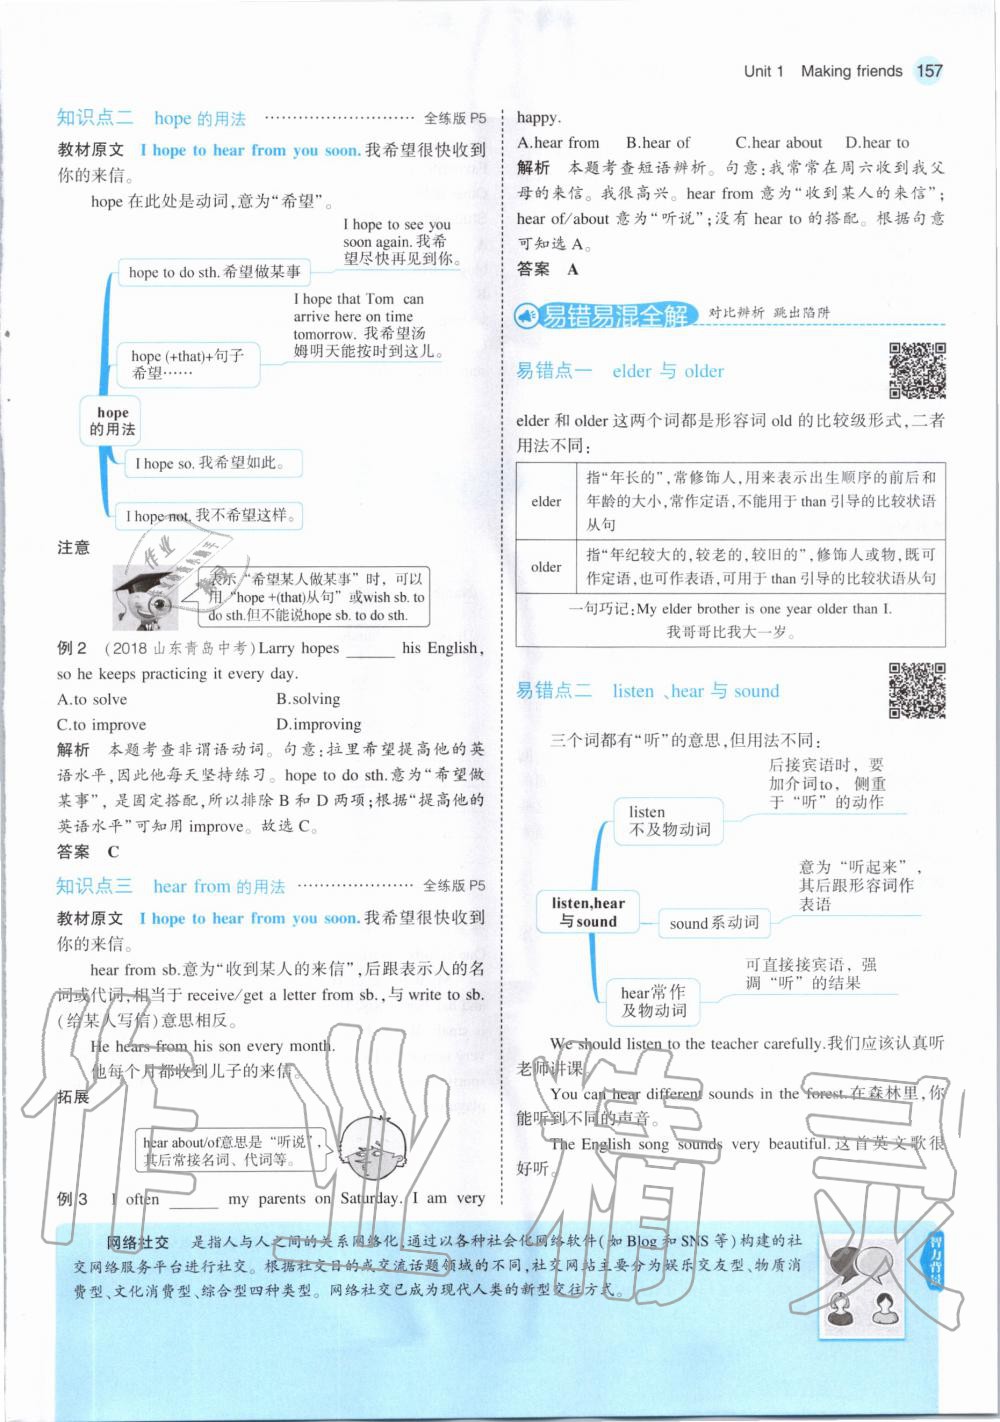 Unit 1 Making friends 157
知识点二 hope 的用法 ……………………… 全练版 P5
教材原文 I hope to hear from you soon.我希望很快收到
你的来信。
hope 在此处是动词,意为“希望”。
hope 的用法
hope to do sth.希望做某事
I hope to see you
soon again.我希
望尽快再见到你。
hope (+that)+句子
希望……
I hope that Tom can
arrive here on time
tomorrow. 我希望汤
姆明天能按时到这儿。
I hope so.我希望如此。
I hope not.我不希望这样。
注意
表示“希望某人做某事”时，可以
用“hope +(that)从句”或wish sb. to
do sth.但不能说hope sb. to do sth.
例 2 (2018 山东青岛中考)Larry hopes ______ his English,
so he keeps practicing it every day.
A.to solve B.solving
C.to improve D.improving
解析 本题考查非谓语动词。句意:拉里希望提高他的英
语水平,因此他每天坚持练习。hope to do sth.意为“希望做
某事”, 是固定搭配,所以排除 B 和 D 两项;根据“提高他的
英语水平”可知用 improve。故选 C。
答案 C
知识点三 hear from 的用法 ………………… 全练版 P5
教材原文 I hope to hear from you soon.我希望很快收到
你的来信。
hear from sb.意为“收到某人的来信”,后跟表示人的名
词或代词,相当于 receive/get a letter from sb.,与 write to sb.
(给某人写信)意思相反。
He hears from his son every month.
他每个月都收到儿子的来信。
拓展
hear about/of意思是“听说”,
其后常接名词、代词等。
例 3 I often ______ my parents on Saturday. I am very
happy.
A.hear from B.hear of C.hear about D.hear to
解析 本题考查短语辨析。句意:我常常在周六收到我父
母的来信。我很高兴。hear from 意为“收到某人的来信”;
hear of/about 意为“听说”;没有 hear to 的搭配。根据句意
可知选 A。
答案 A
易错易混全解 对比辨析 跳出陷阱
易错点一 elder 与 older
elder 和 older 这两个词都是形容词 old 的比较级形式,二者
用法不同:
elder
指“年长的”,常修饰人,用来表示出生顺序的前后和
年龄的大小,常作定语,不能用于 than 引导的比较状语
从句
older
指“年纪较大的,较老的,较旧的”,修饰人或物,既可
作定语,也可作表语,可用于 than 引导的比较状语从句
一句巧记:My elder brother is one year older than I.
我哥哥比我大一岁。
易错点二 listen 、hear 与 sound
三个词都有“听”的意思,但用法不同:
listen,hear
与 sound
listen
不及物动词
后接宾语时，要
加介词to，侧重
于“听”的动作
sound系动词
意为“听起来”,
其后跟形容词作
表语
hear常作
及物动词
可直接接宾语，强
调“听”的结果
We should listen to the teacher carefully.我们应该认真听
老师讲课。
You can hear different sounds in the forest.在森林里,你
能听到不同的声音。
The English song sounds very beautiful.这首英文歌很
好听。
网络社交 是指人与人之间的关系网络化,通过以各种社会化网络软件(如 Blog 和 SNS 等)构建的社
交网络服务平台进行社交。根据社交目的或交流话题领域的不同,社交网站主要分为娱乐交友型、物质消
费型、文化消费型、综合型四种类型。网络社交已成为现代人类的新型交往方式。
智力背景
作业精灵